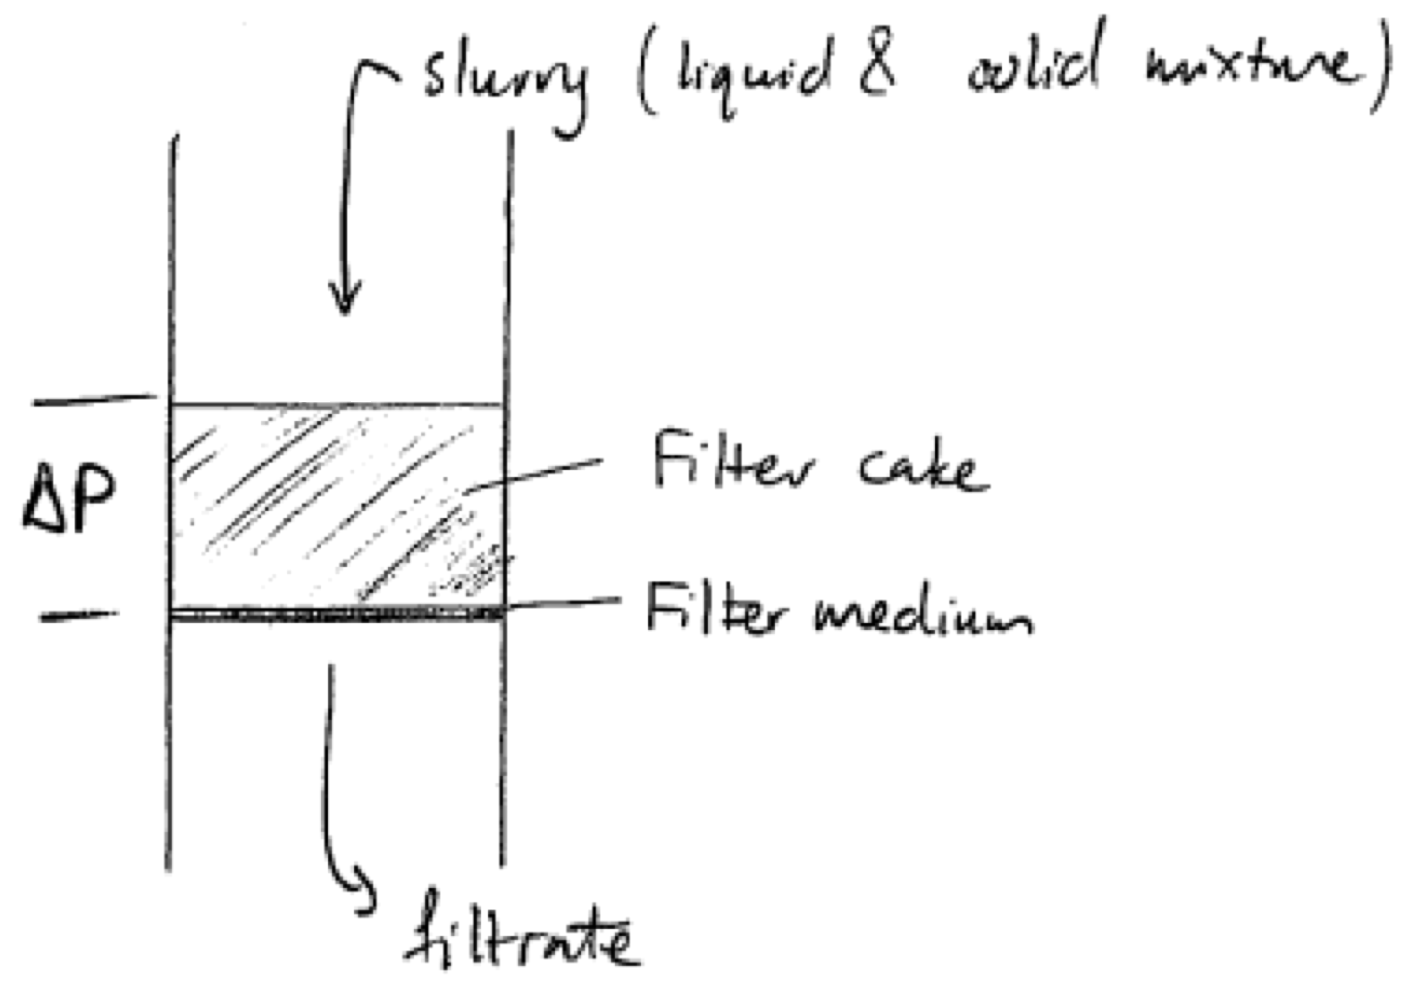 slurry (liquid & solid mixture)
ΔP
Filter cake
Filter medium
filtrate